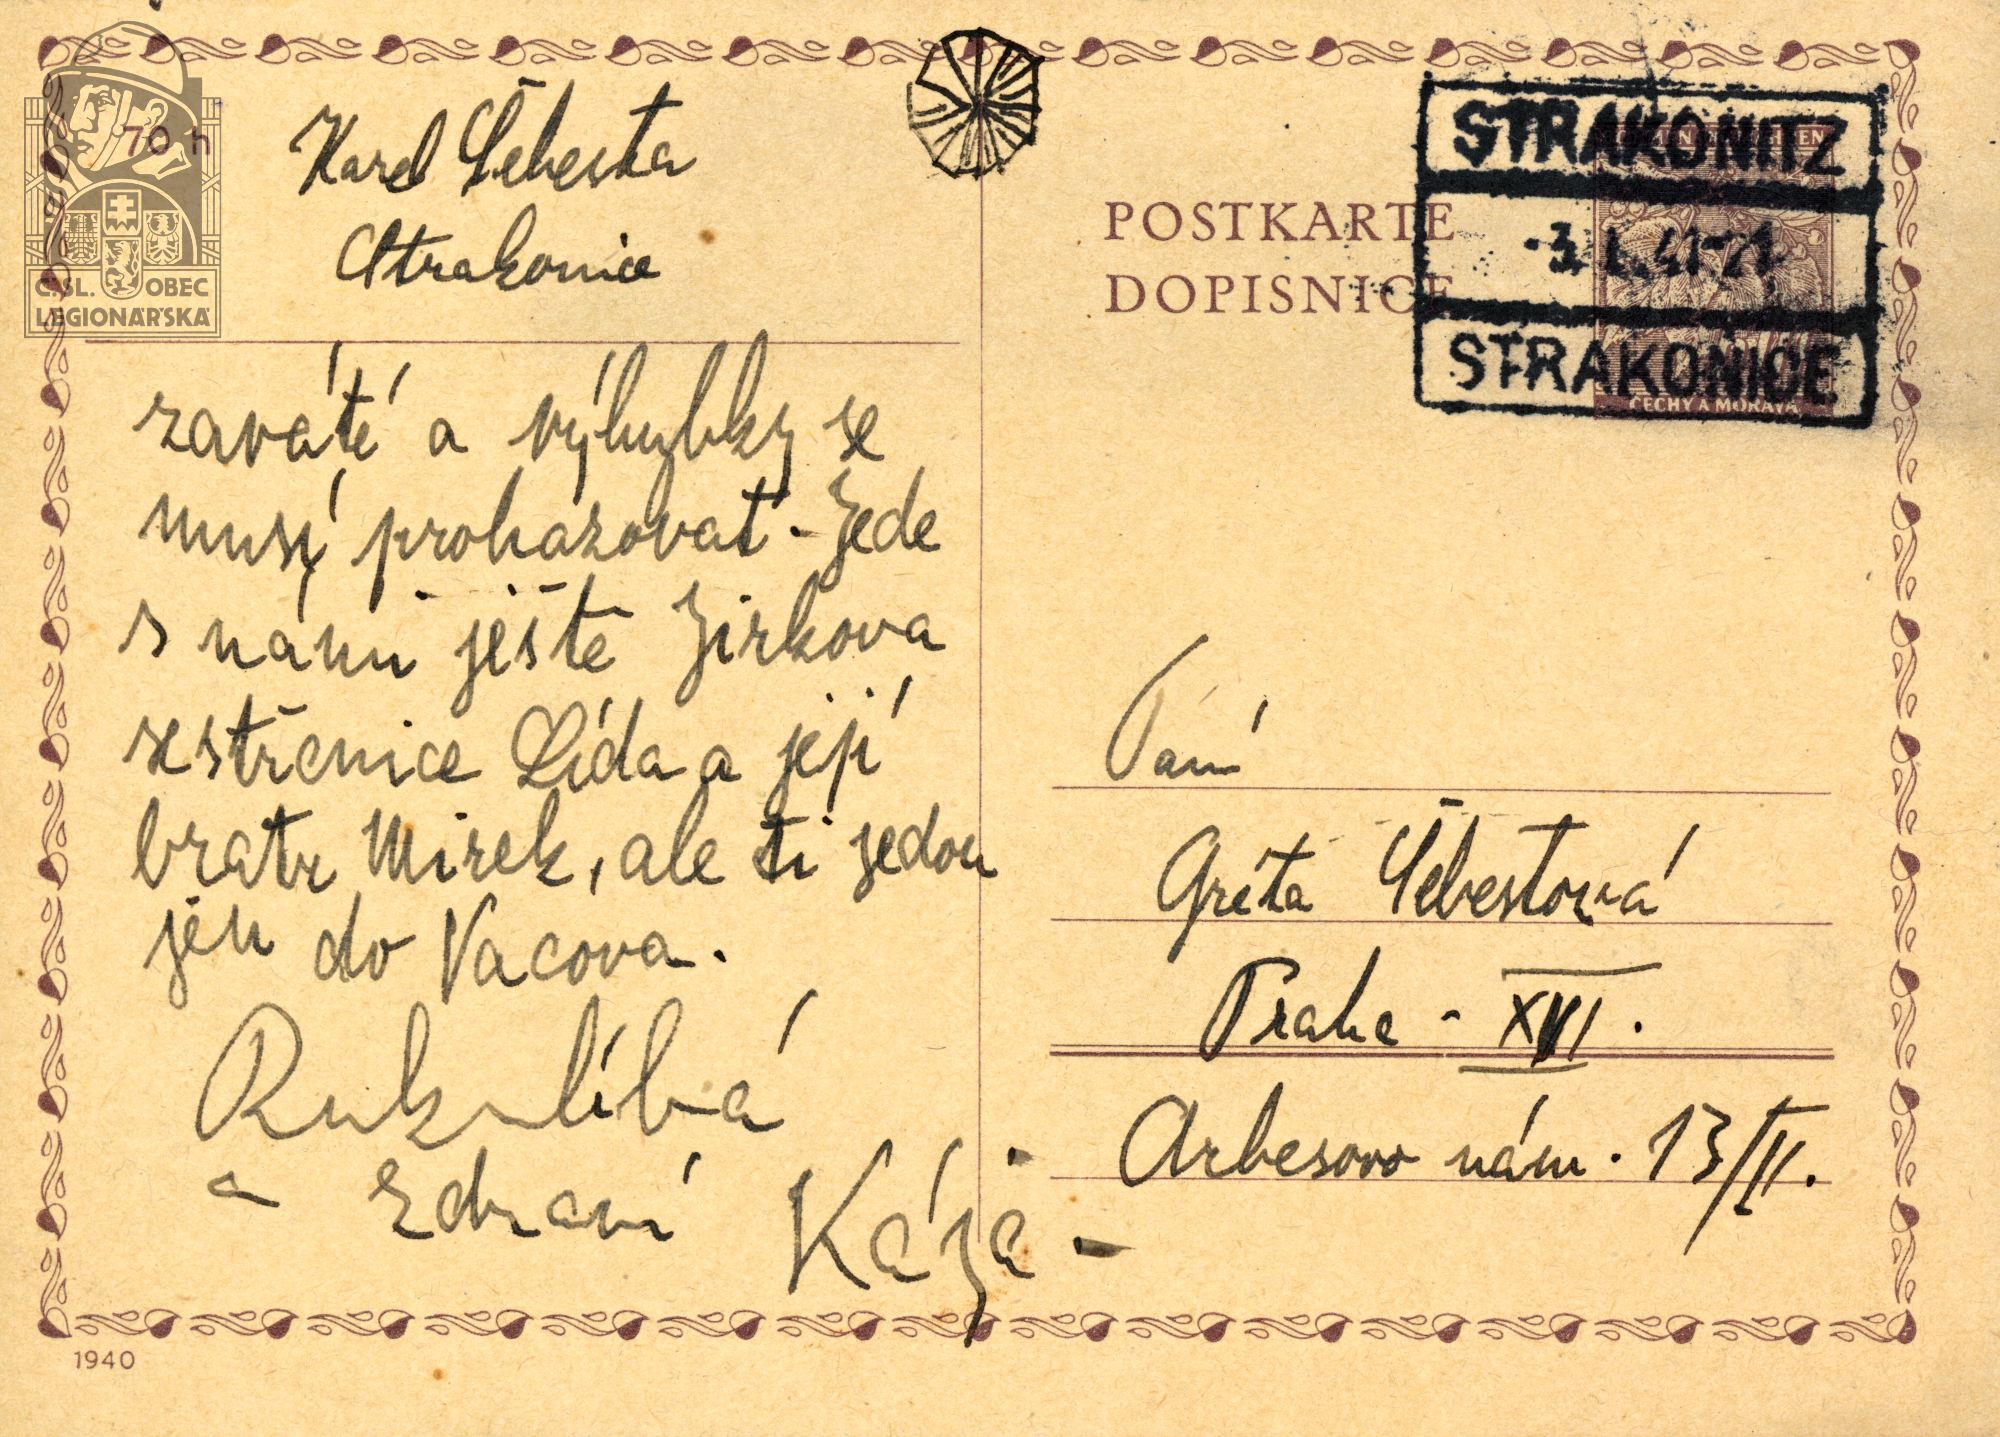 70 h
Karel Šebesta
Strakonice
Č.SL. OBEC
LEGIONÁŘSKÁ
zaváté a výhybky se
musí prohazovat - Jede
s námi ještě Jirkova
sestřenice Lída a její
bratr Mirek, ale ti jedou
jen do Vacova.
Ruku líbá
a zdraví Kája -
1940
POSTKARTE
DOPISNICE
STRAKONITZ
-3. I. 41-21
STRAKONICE
ČECHY A MORAVA
Paní
Gréta Šebestová
Praha - XVI.
Arbesovo nám. 13/II.